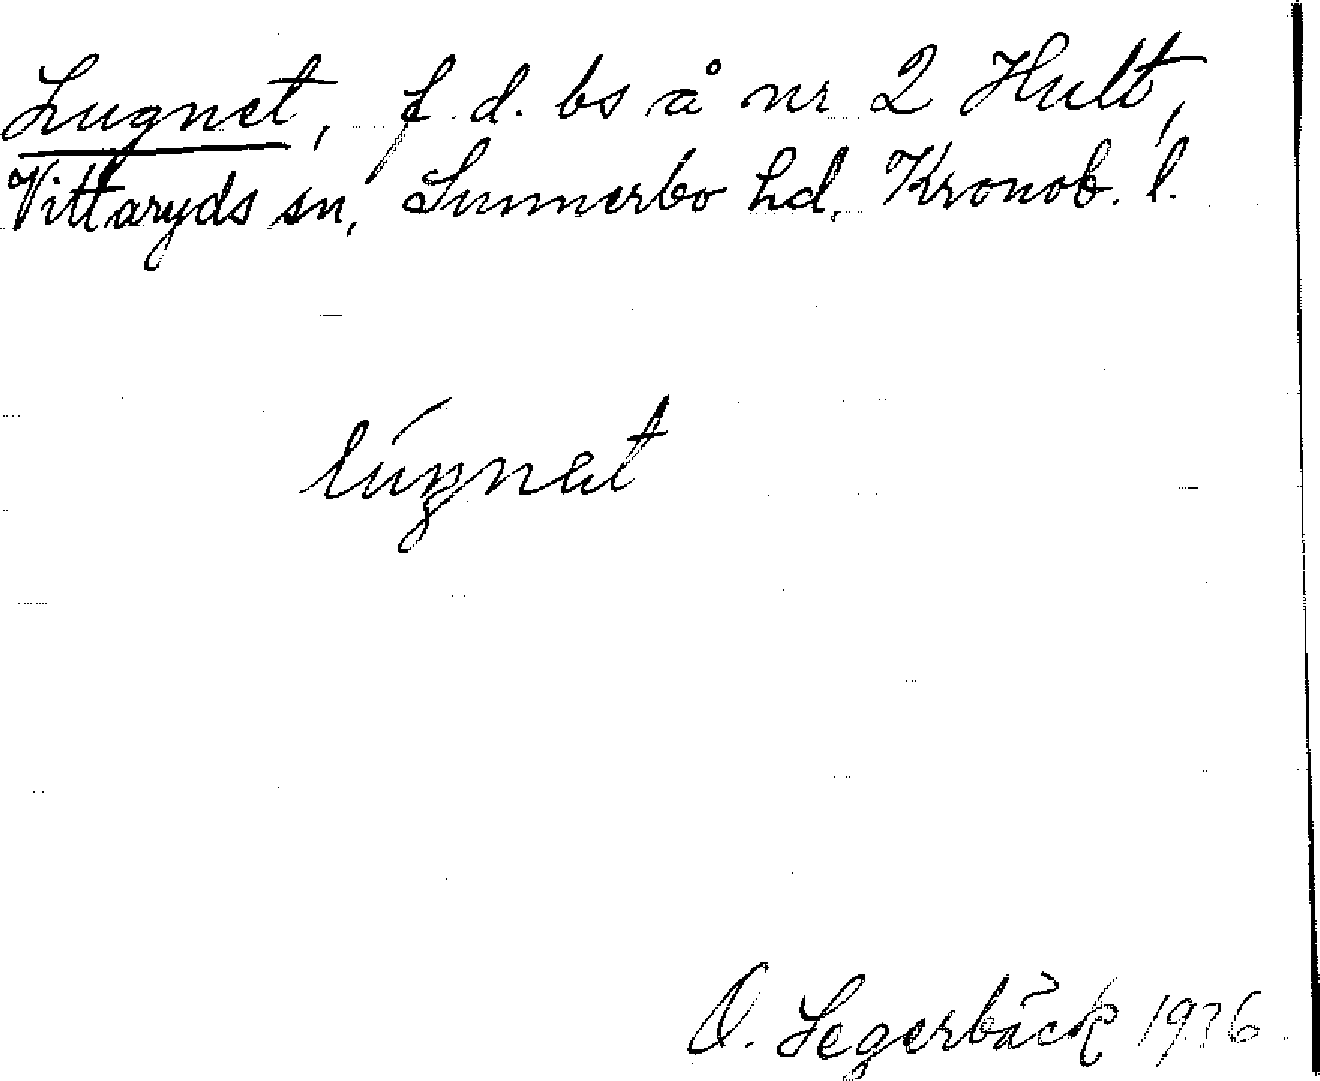 Lugnet, f. d. bs å nr 2 Hult,
Vittaryds sn, Sunnerbo hd, Kronob. l.
lúŋnat
O. Segerbäck 1936